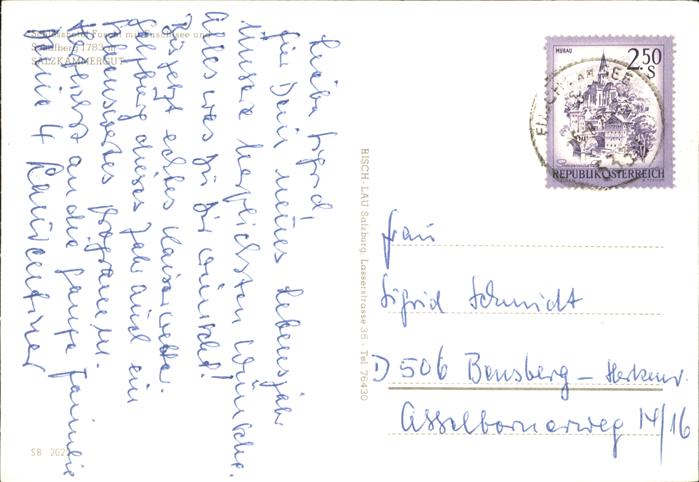 Schlosshotel Fuschl mit Fuschlsee und
Schafberg 1783 m
SALZKAMMERGUT
Liebe Sigrid,
für Dein neues Lebensjahr
unsere herzlichsten Wünsche.
Alles was Du Dir wünscht!
Bis jetzt echtes Kaiserwetter.
Salzburg dieses Jahr auch ein
lohnendes Programm.
Herzlichst an die ganze Familie
Deine 4
SB 202
RISCH-LAU Salzburg Lasserstrasse 35 · Tel. 76430
MURAU
2.50
S
REPUBLIK ÖSTERREICH
Frau
Sigrid Schmidt
D 506 Bensberg - Herkenr.
Asselbornerweg 14/16